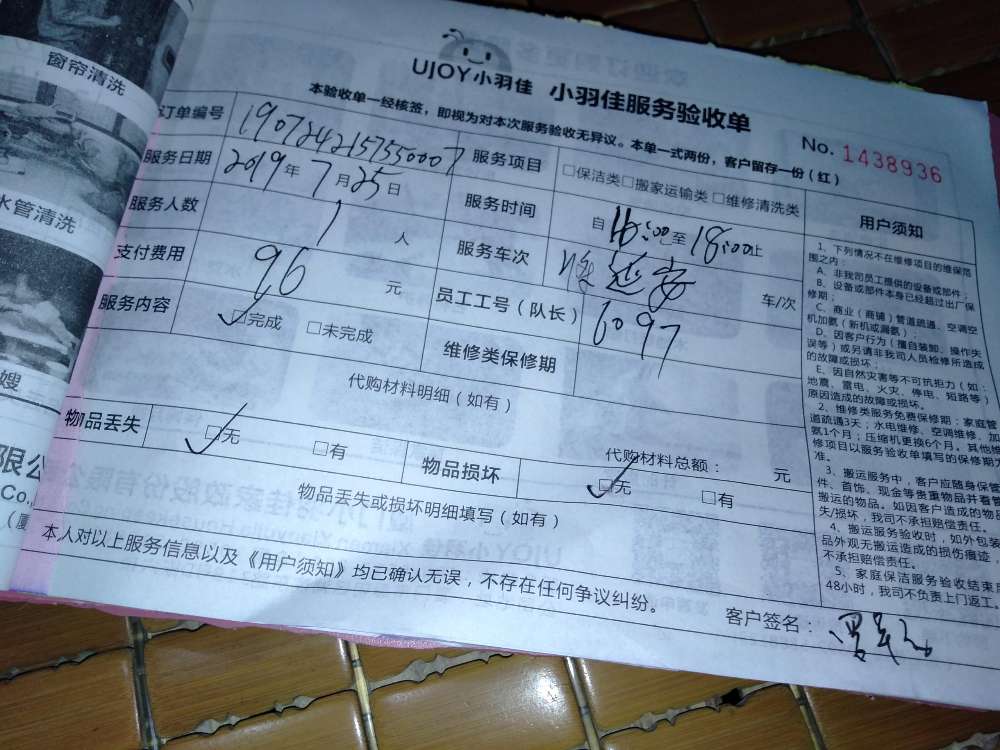 窗帘清洗
水管清洗
嫂
限公
Co.,
UJOY小羽佳 小羽佳服务验收单
本验收单一经核签，即视为对本次服务验收无异议。本单一式两份，客户留存一份（红）
No. 1438936
订单编号 1907242157550007 服务项目 □保洁类□搬家运输类 □维修清洗类
服务日期 2019年7月25日 服务时间 自16:00至18:00止
服务人数 1 人 服务车次 车/次
支付费用 96 元 员工工号（队长） 6097
服务内容 ☑完成 □未完成 维修类保修期
代购材料明细（如有）
代购材料总额： 元
物品丢失 ☑无 □有 物品损坏 ☑无 □有
物品丢失或损坏明细填写（如有）
本人对以上服务信息以及《用户须知》均已确认无误，不存在任何争议纠纷。
客户签名：
用户须知
1、下列情况不在维修项目的维保范
围之内：
A、非我司员工提供的设备或部件；
B、设备或部件本身已经超过出厂保
修期；
C、商业（商铺）管道疏通、空调空
机加氨（新机或漏氨）；
D、因客户行为（擅自装卸、操作失
误等）或另请非我司人员检修所造成
的故障或损坏；
E、因自然灾害等不可抗拒力（如：
地震、雷电、火灾、停电、短路等）
原因造成的故障或损坏。
2、维修类服务免费保修期：家庭管
道疏通3天；水电维修、空调维修、加
氨1个月；压缩机更换6个月。其他维
修项目以服务验收单填写的保修期为
准。
3、搬运服务中，客户应随身保管
件、首饰、现金等贵重物品并看管
搬运的物品。如因客户造成的物品
失/损坏，我司不承担赔偿责任。
4、搬运服务验收时，如外包装
品外观无搬运造成的损伤痕迹，
不承担赔偿责任。
5、家庭保洁服务验收结束
48小时，我司不负责上门返工。